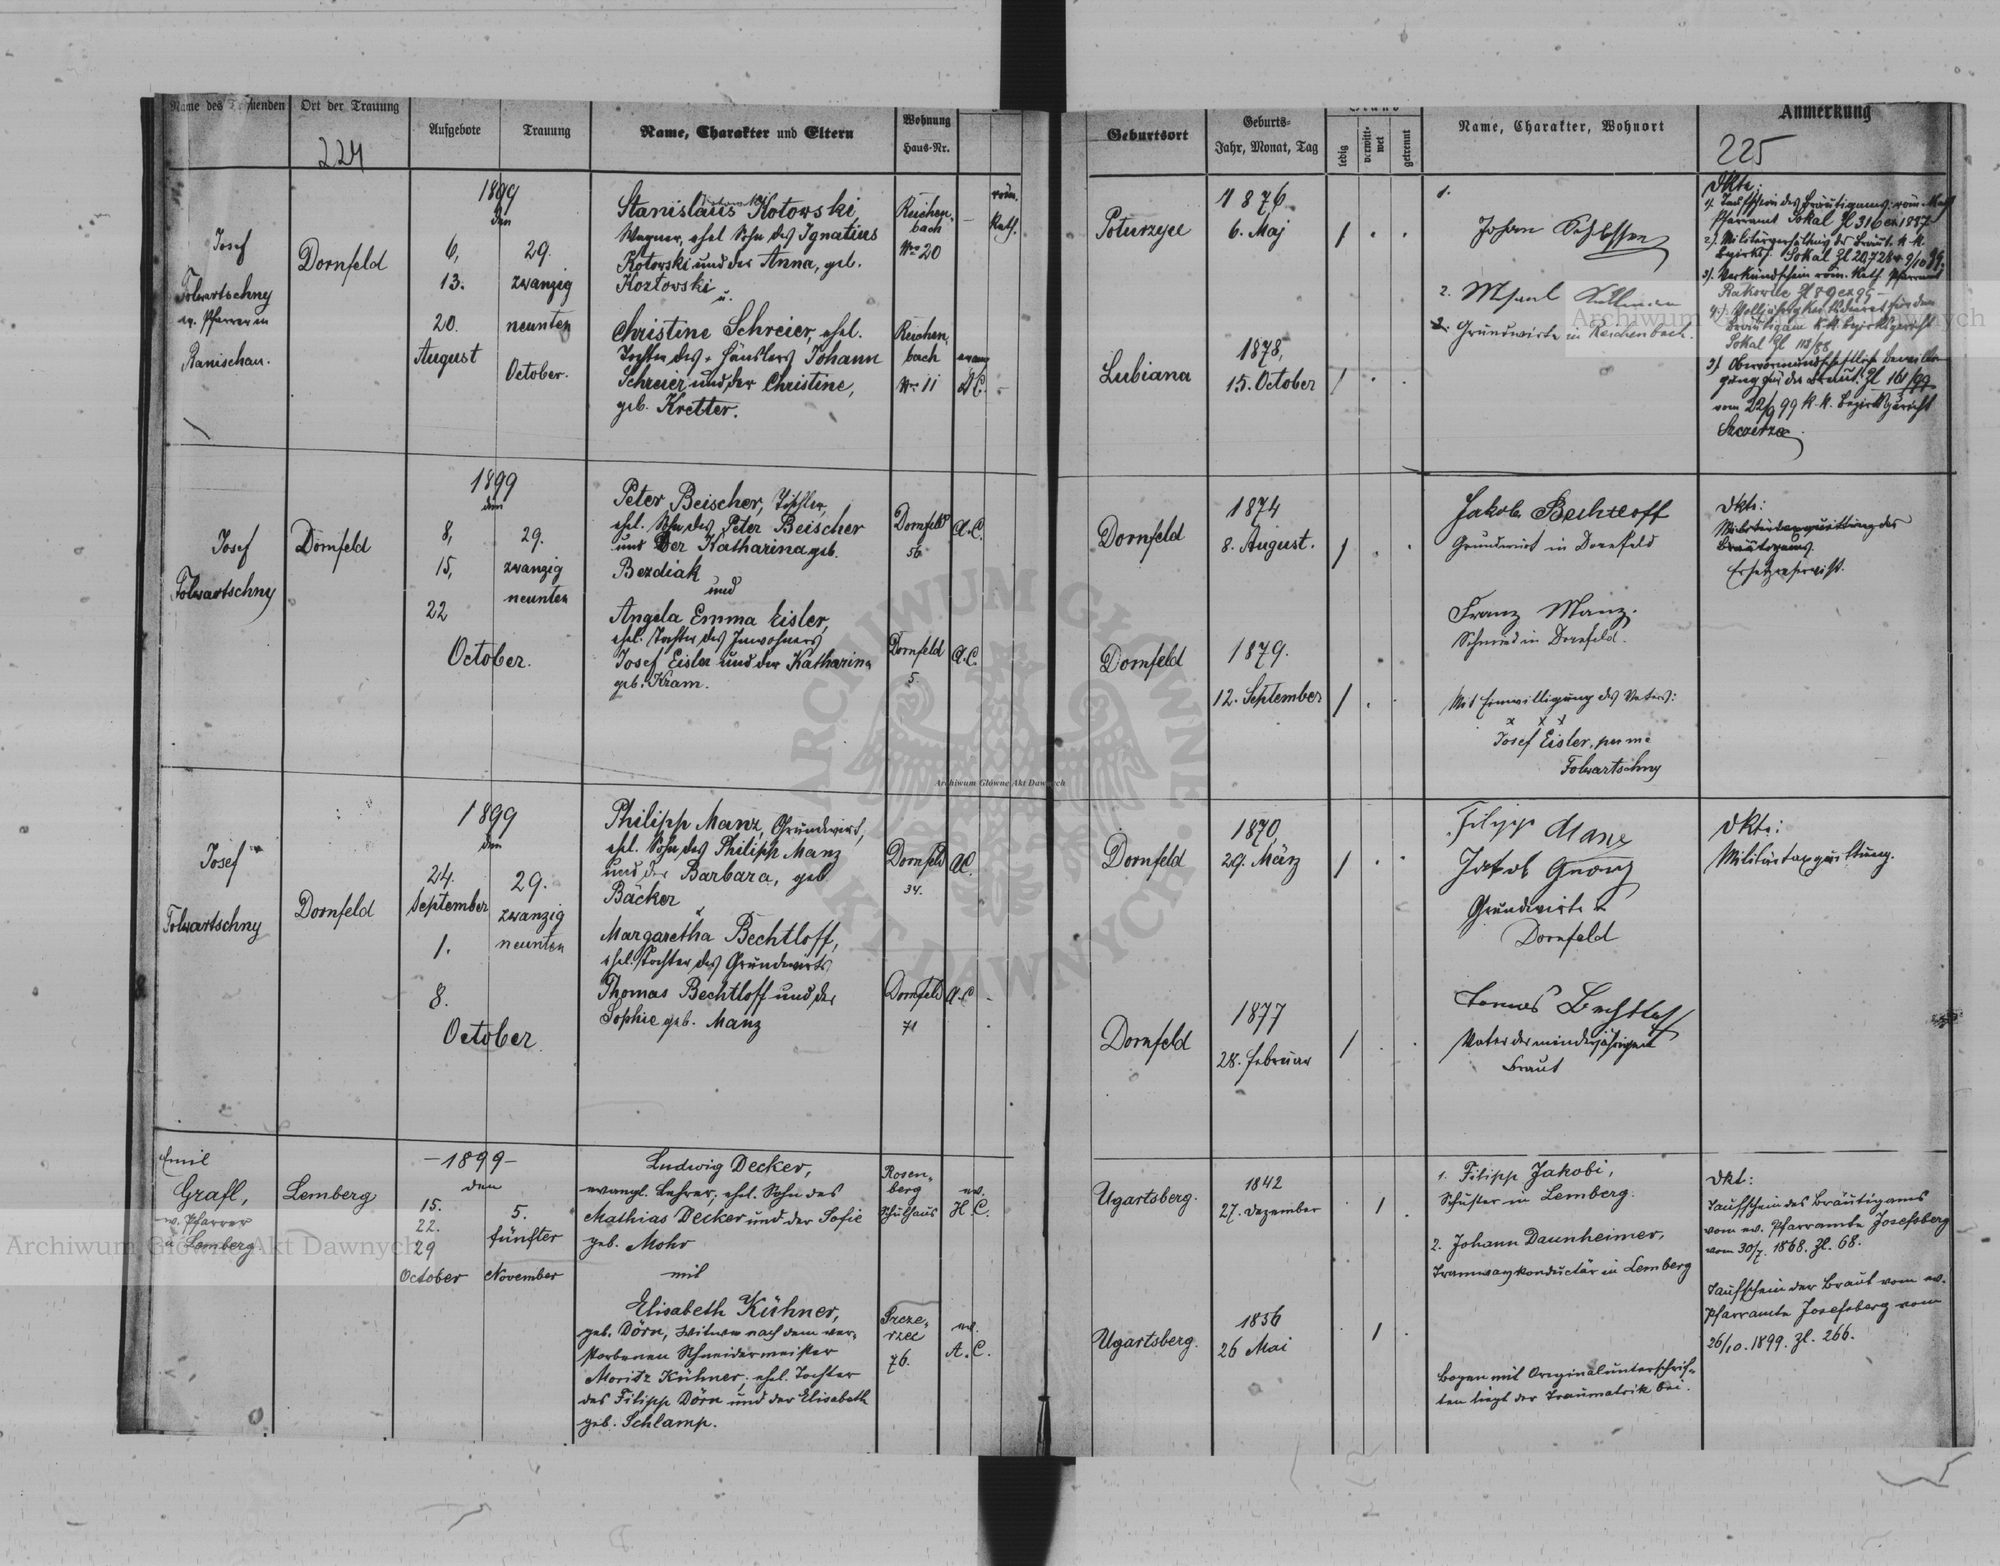 Name des Trauenden
Ort der Trauung
Aufgebote
Trauung
Name, Charakter und Eltern
Wohnung
Haus-Nr.
224
Geburtsort
Geburts-
Jahr, Monat, Tag
ledig
verwitt-
wet
getrennt
Name, Charakter, Wohnort
Anmerkung
225
Josef
Folwartschny
ev. Pfarrer in
Ranischau.
Dornfeld
1899
den
6,
13.
20.
August
29.
zwanzig
neunten
October.
Stanislaus Kotowski,
Wagner, ehel. Sohn des Ignatius
Kotowski und der Anna, geb.
Kozlovski
u.
Christine Schreier, ehel.
Tochter des Häuslers Johann
Schreier und der Christine,
geb. Kretter.
Reichen-
bach
Nro 20
röm.
Kath.
Reichen-
bach
Nro 11
evang
A.C.
Poturzyce
1876
6. Maj
Lubiana
1878,
15. October
1.
Johann
2.
Grundwirte in Reichenbach.
Dkte:
1). Taufschein des Bräutigams: röm. Kath
Pfarramt Sokal Zl 316 ex 1897
Bezirksg. Sokal
3). Verkündschein röm. kath. Pfarramt
Rakowce Zl 89 ex 99
Bräutigam k.k. Bezirksgericht
Sokal Zl
gung für die Braut Zl 161/99
vom 22/9 99 k.k. Bezirksgericht
Szczerzec
Josef
Folwartschny
Dornfeld
1899
den
8,
15,
22
October.
29.
zwanzig
neunten
Peter Beischer, Tischler,
ehel. Sohn des Peter Beischer
und der Katharina geb.
Bezdiak
und
Angela Emma Eisler,
ehel. Tochter des Inwohners
Josef Eisler und der Katharina
geb. Kram.
Dornfeld
56
A.C.
Dornfeld
5.
A.C.
Dornfeld
1874
8. August.
Dornfeld
1879.
12. September
Jakob Bechtloff
Grundwirt in Dornfeld
Franz Manz.
Schmied in Dornfeld.
Mit Einwilligung des Vaters:
x x x
Josef Eisler, per me
Folwartschny
Dkte:
Militärtaxquittung des
Bräutigams.
Ersatzreservist.
Josef
Folwartschny
Dornfeld
1899
den
24.
September
1.
8.
October.
29.
zwanzig
neunten
Philipp Manz, Grundwirt,
ehel. Sohn des Philipp Manz
und der Barbara, geb
Bäcker
u
Margaretha Bechtloff,
ehel. Tochter des Grundwirts
Thomas Bechtloff und der
Sophie geb. Manz
Dornfeld
34.
A.C.
Dornfeld
71
A.C
Dornfeld
1870
29. März
Dornfeld
1877
28. Februar
Filipp Manz
Jakob
Grundwirte in
Dornfeld
Tomas Bechtloff
Vater der minderjährigen
Braut
Dkte:
Militärtaxquittung.
Emil
Grafl,
ev. Pfarrer
in Lemberg.
Lemberg
-1899-
den
15.
22.
29
October
5.
fünfter
November
Ludwig Decker,
evangl. Lehrer, ehel. Sohn des
Mathias Decker und der Sofie
geb. Mohr
mit
Elisabeth Kühner,
geb. Dörn, Witwe nach dem ver-
storbenen Schneidermeister
Moritz Kühner, ehel. Tochter
des Filipp Dörn und der Elisabeth
geb. Schlamp.
Rosen-
berg
Schulhaus
ev.
H.C.
Szcze-
rzec
76.
ev.
A.C.
Ugartsberg.
1842
27. Dezember
Ugartsberg.
1856
26 Mai
1. Filipp Jakobi,
Schuster in Lemberg.
2. Johann Daunheimer,
Tramwaykonductär in Lemberg
Bogen mit Originalunterschrif-
ten liegt der Traumatrik bei.
Dkt:
Taufschein des Bräutigams
vom ev. Pfarramte Josefsberg
vom 30/7. 1868. Zl. 68.
Taufschein der Braut vom ev.
Pfarramte Josefsberg vom
26/10. 1899. Zl. 266.
Archiwum Główne Akt Dawnych
Archiwum Główne Akt Dawnych
Archiwum Główne Akt Dawnych
ARCHIWUM GŁÓWNE AKT DAWNYCH